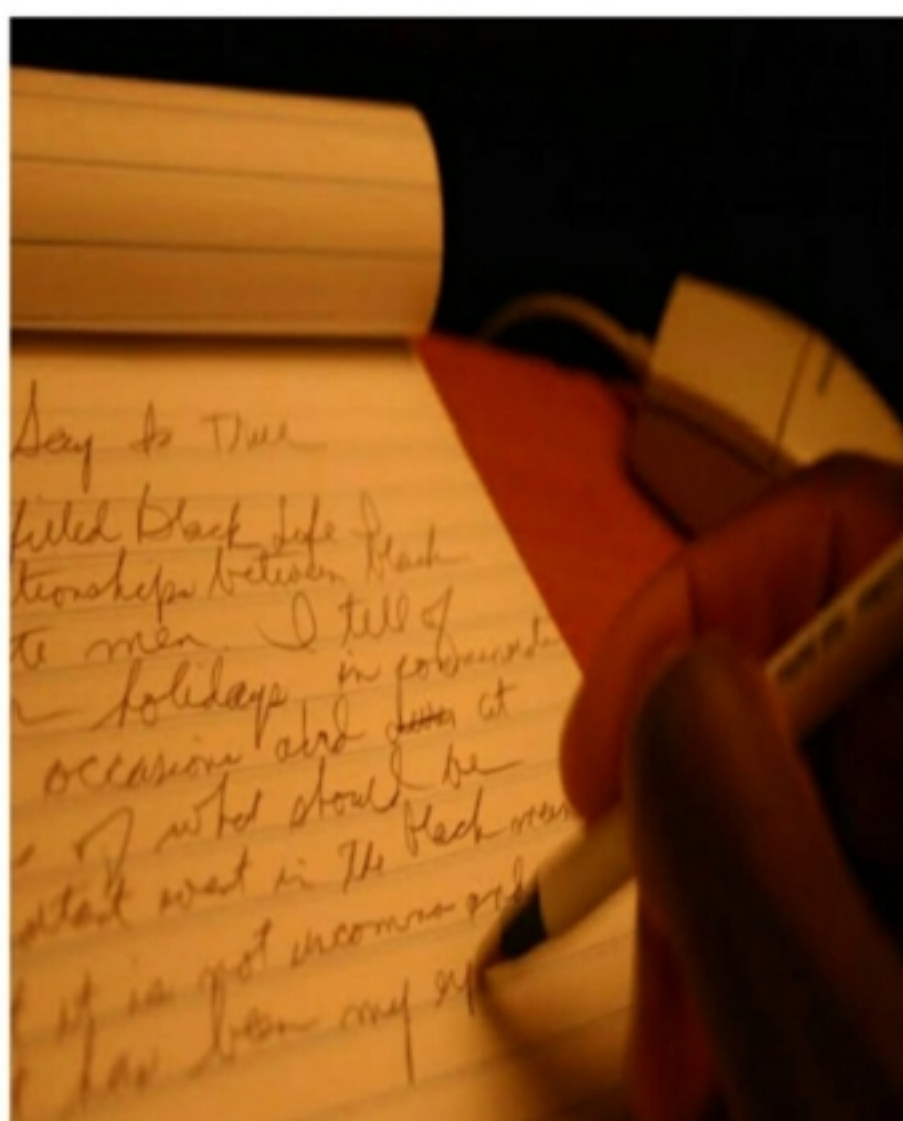 Say to True
filled black life I
tionships between black
te men. I tell of
holidays, in
occasions and at
of what should be
event in the black man
it is not uncommon and
has been my